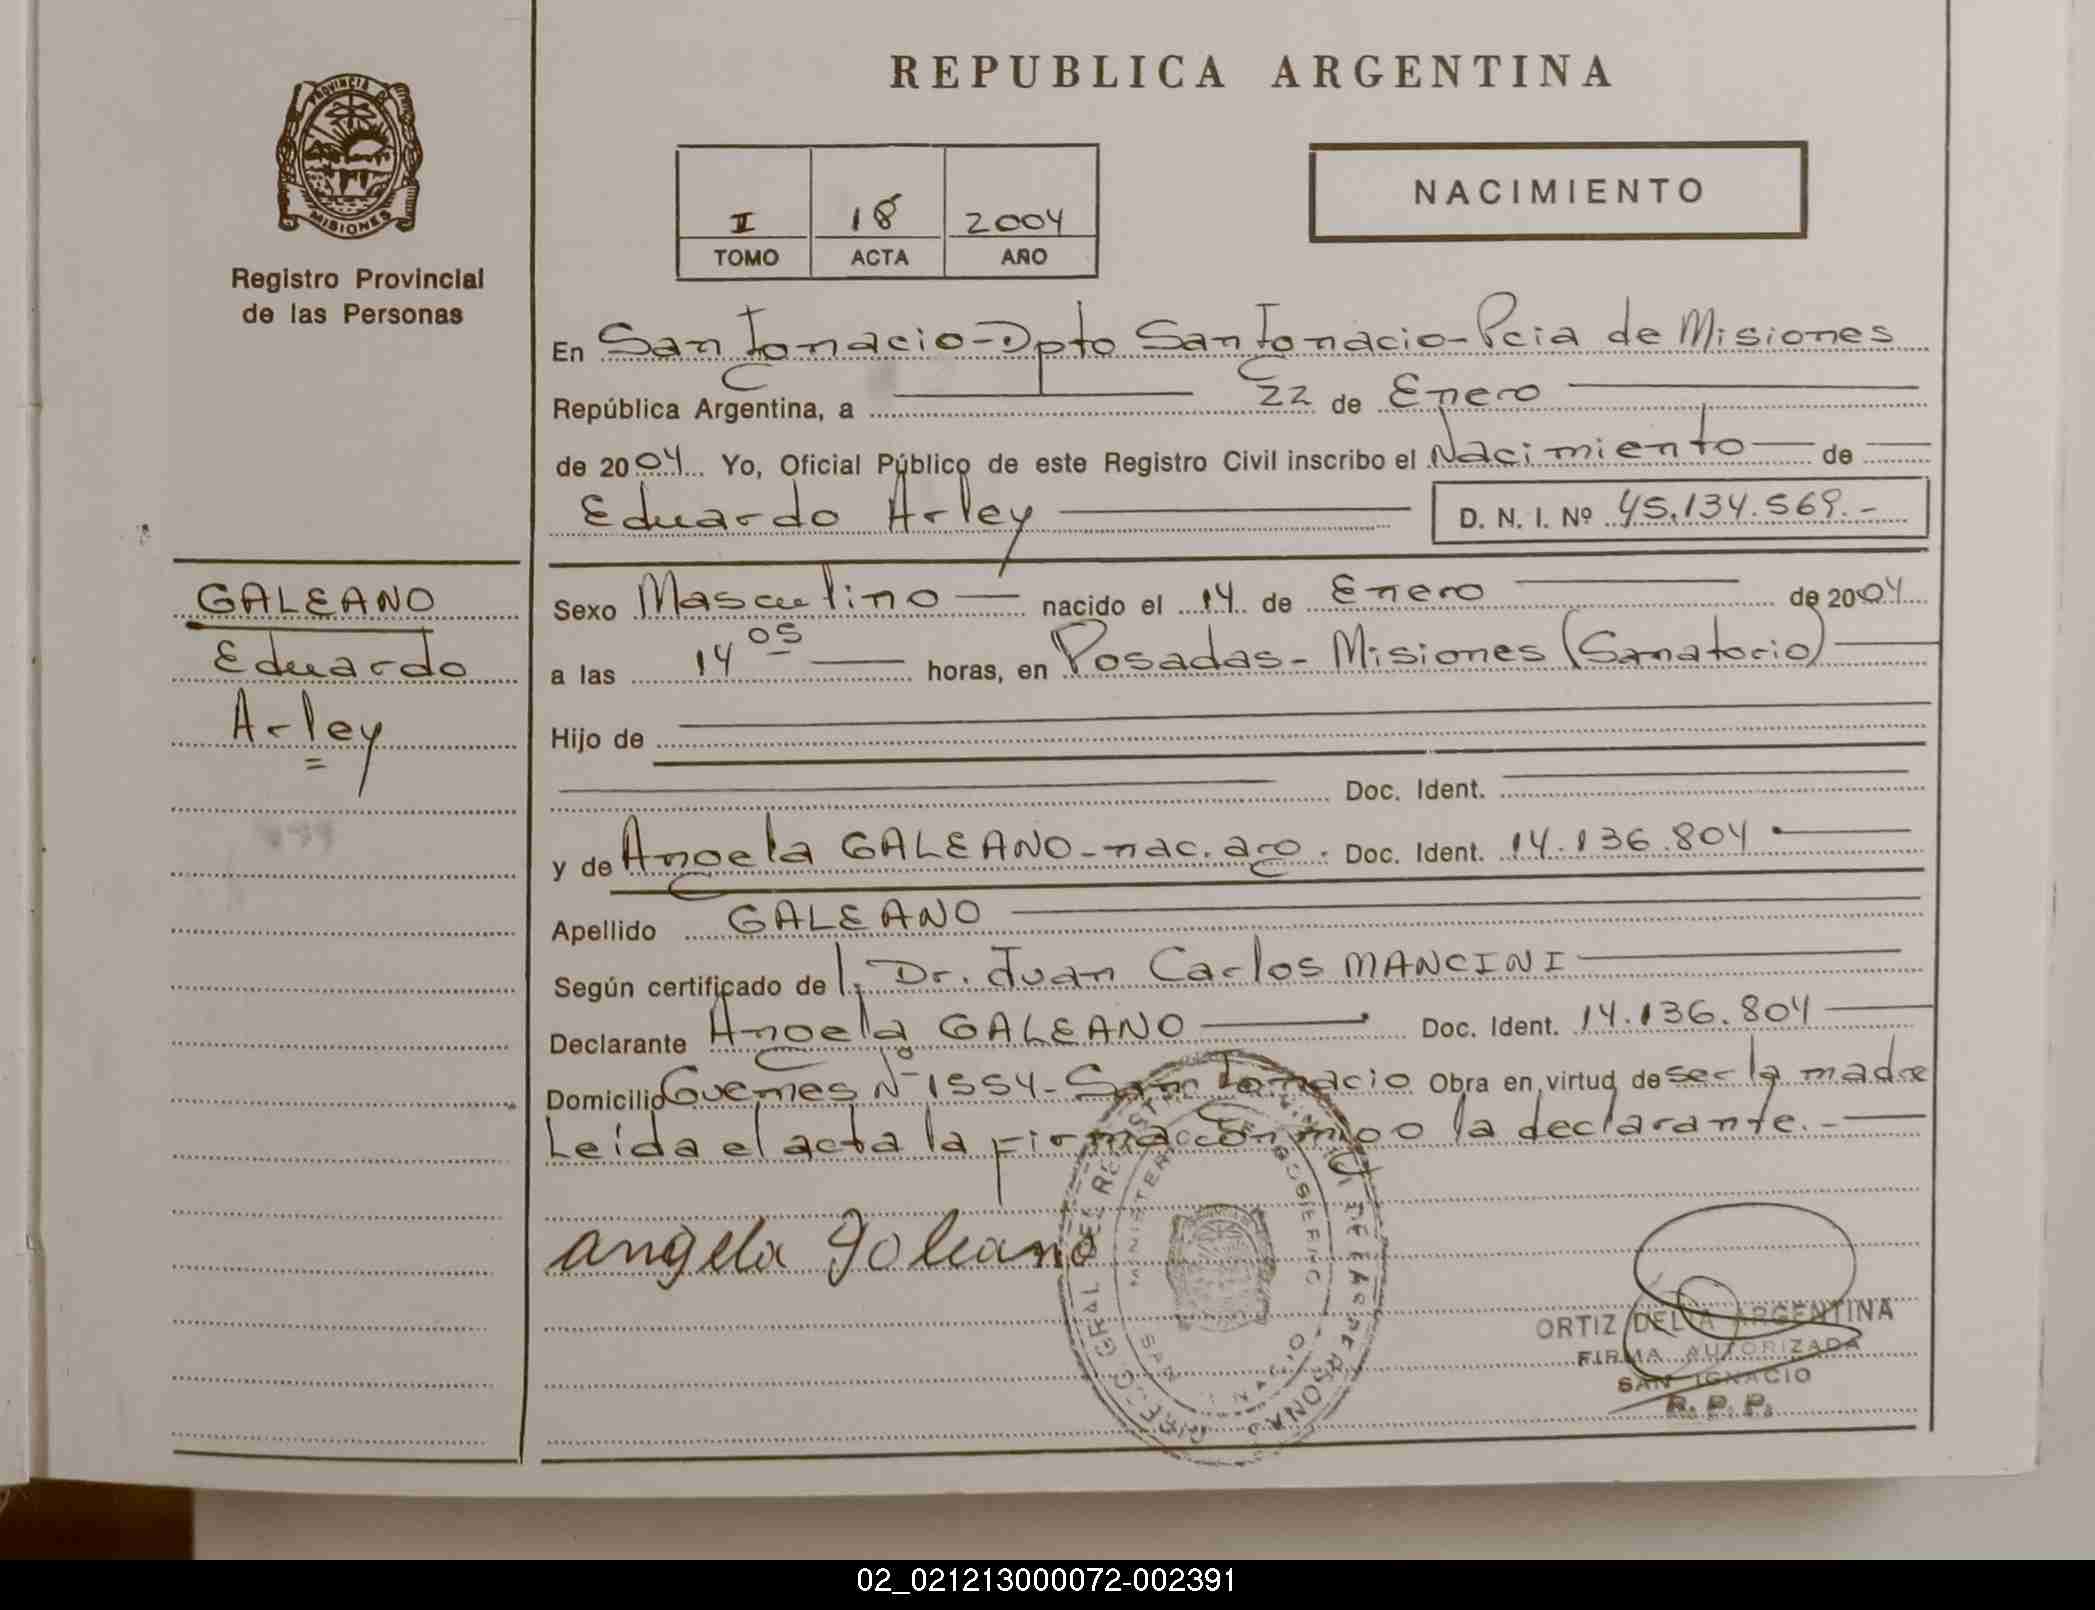 REPUBLICA ARGENTINA
PROVINCIA DE
MISIONES
Registro Provincial
de las Personas
I 18 2004
TOMO ACTA AÑO
NACIMIENTO
En San Ignacio-Dpto San Ignacio-Pcia de Misiones
República Argentina, a 22 de Enero
de 2004 Yo, Oficial Público de este Registro Civil inscribo el Nacimiento de
Eduardo Arley D. N. I. Nº 45.134.569.-
GALEANO
Eduardo
Arley
Sexo Masculino nacido el 14 de Enero de 2004
a las 14 05 horas, en Posadas- Misiones (Sanatorio)
Hijo de
Doc. Ident.
y de Angela GALEANO-nac. arg. Doc. Ident. 14.136.804
Apellido GALEANO
Según certificado de l: Dr. Juan Carlos MANCINI
Declarante Angela GALEANO Doc. Ident. 14.136.804
Domicilio Guemes Nº 1554- San Ignacio Obra en virtud de ser la madre
Leída el acta la firma conmigo la declarante.-
angela galeano
ORTIZ DELIA ARGENTINA
FIRMA AUTORIZADA
SAN IGNACIO
R. P. P.
02_021213000072-002391